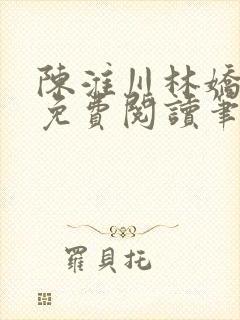 陳淮川林嬌
免費閱讀筆
羅貝托